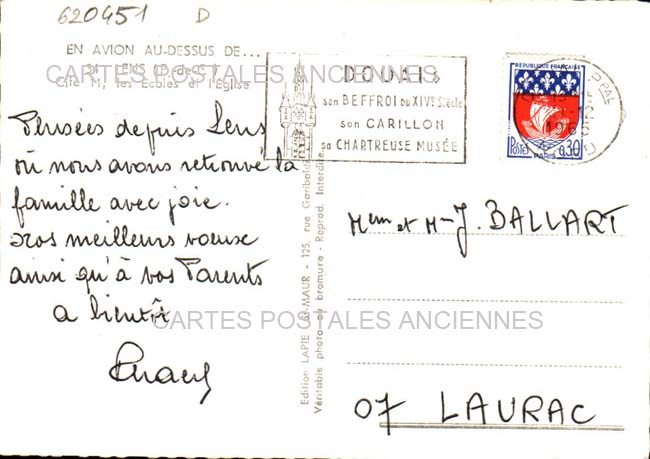 620451 D
EN AVION AU-DESSUS DE...
LENS (P.-de-C.)
Cité 11, les Ecoles et l'Eglise
CARTES POSTALES ANCIENNES
DOUAI
son BEFFROI DU XIVe Siècle
son CARILLON
sa CHARTREUSE MUSÉE
REPUBLIQUE FRANÇAISE
Postes 0,30
PARIS
PPAL
Pensées depuis Lens
où nous avons retrouvé la
famille avec joie.
Nos meilleurs vœux
ainsi qu'à vos Parents
a bientôt
Edition LAPIE ST-MAUR - 125, rue Garibaldi
Véritable photo-au bromure - Reprod. Interdite
et J. BALLART
CARTES POSTALES ANCIENNES
07 LAURAC